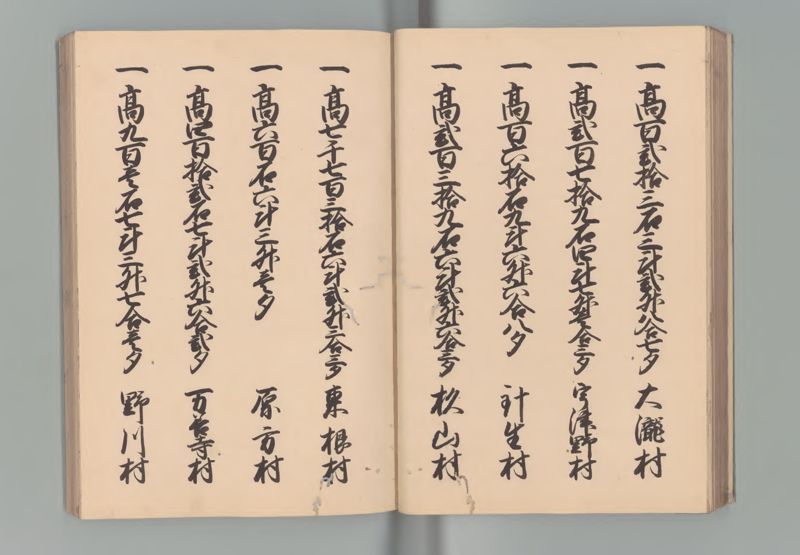 一 高百弐拾三石三斗弐升八合七夕 大瀧村
一 高弐百七拾九石四斗七升壱合三夕 宇津野村
一 高百六拾石九斗六升六合八夕 針生村
一 高弐百三拾九石六斗弐升六合三夕 杉山村
一 高七千七百三拾石六斗弐升三合三夕 東根村
一 高六百石六斗三升壱夕 原方村
一 高四百拾弐石七斗弐升六合弐夕 万善寺村
一 高九百壱石七斗三升七合壱夕 野川村